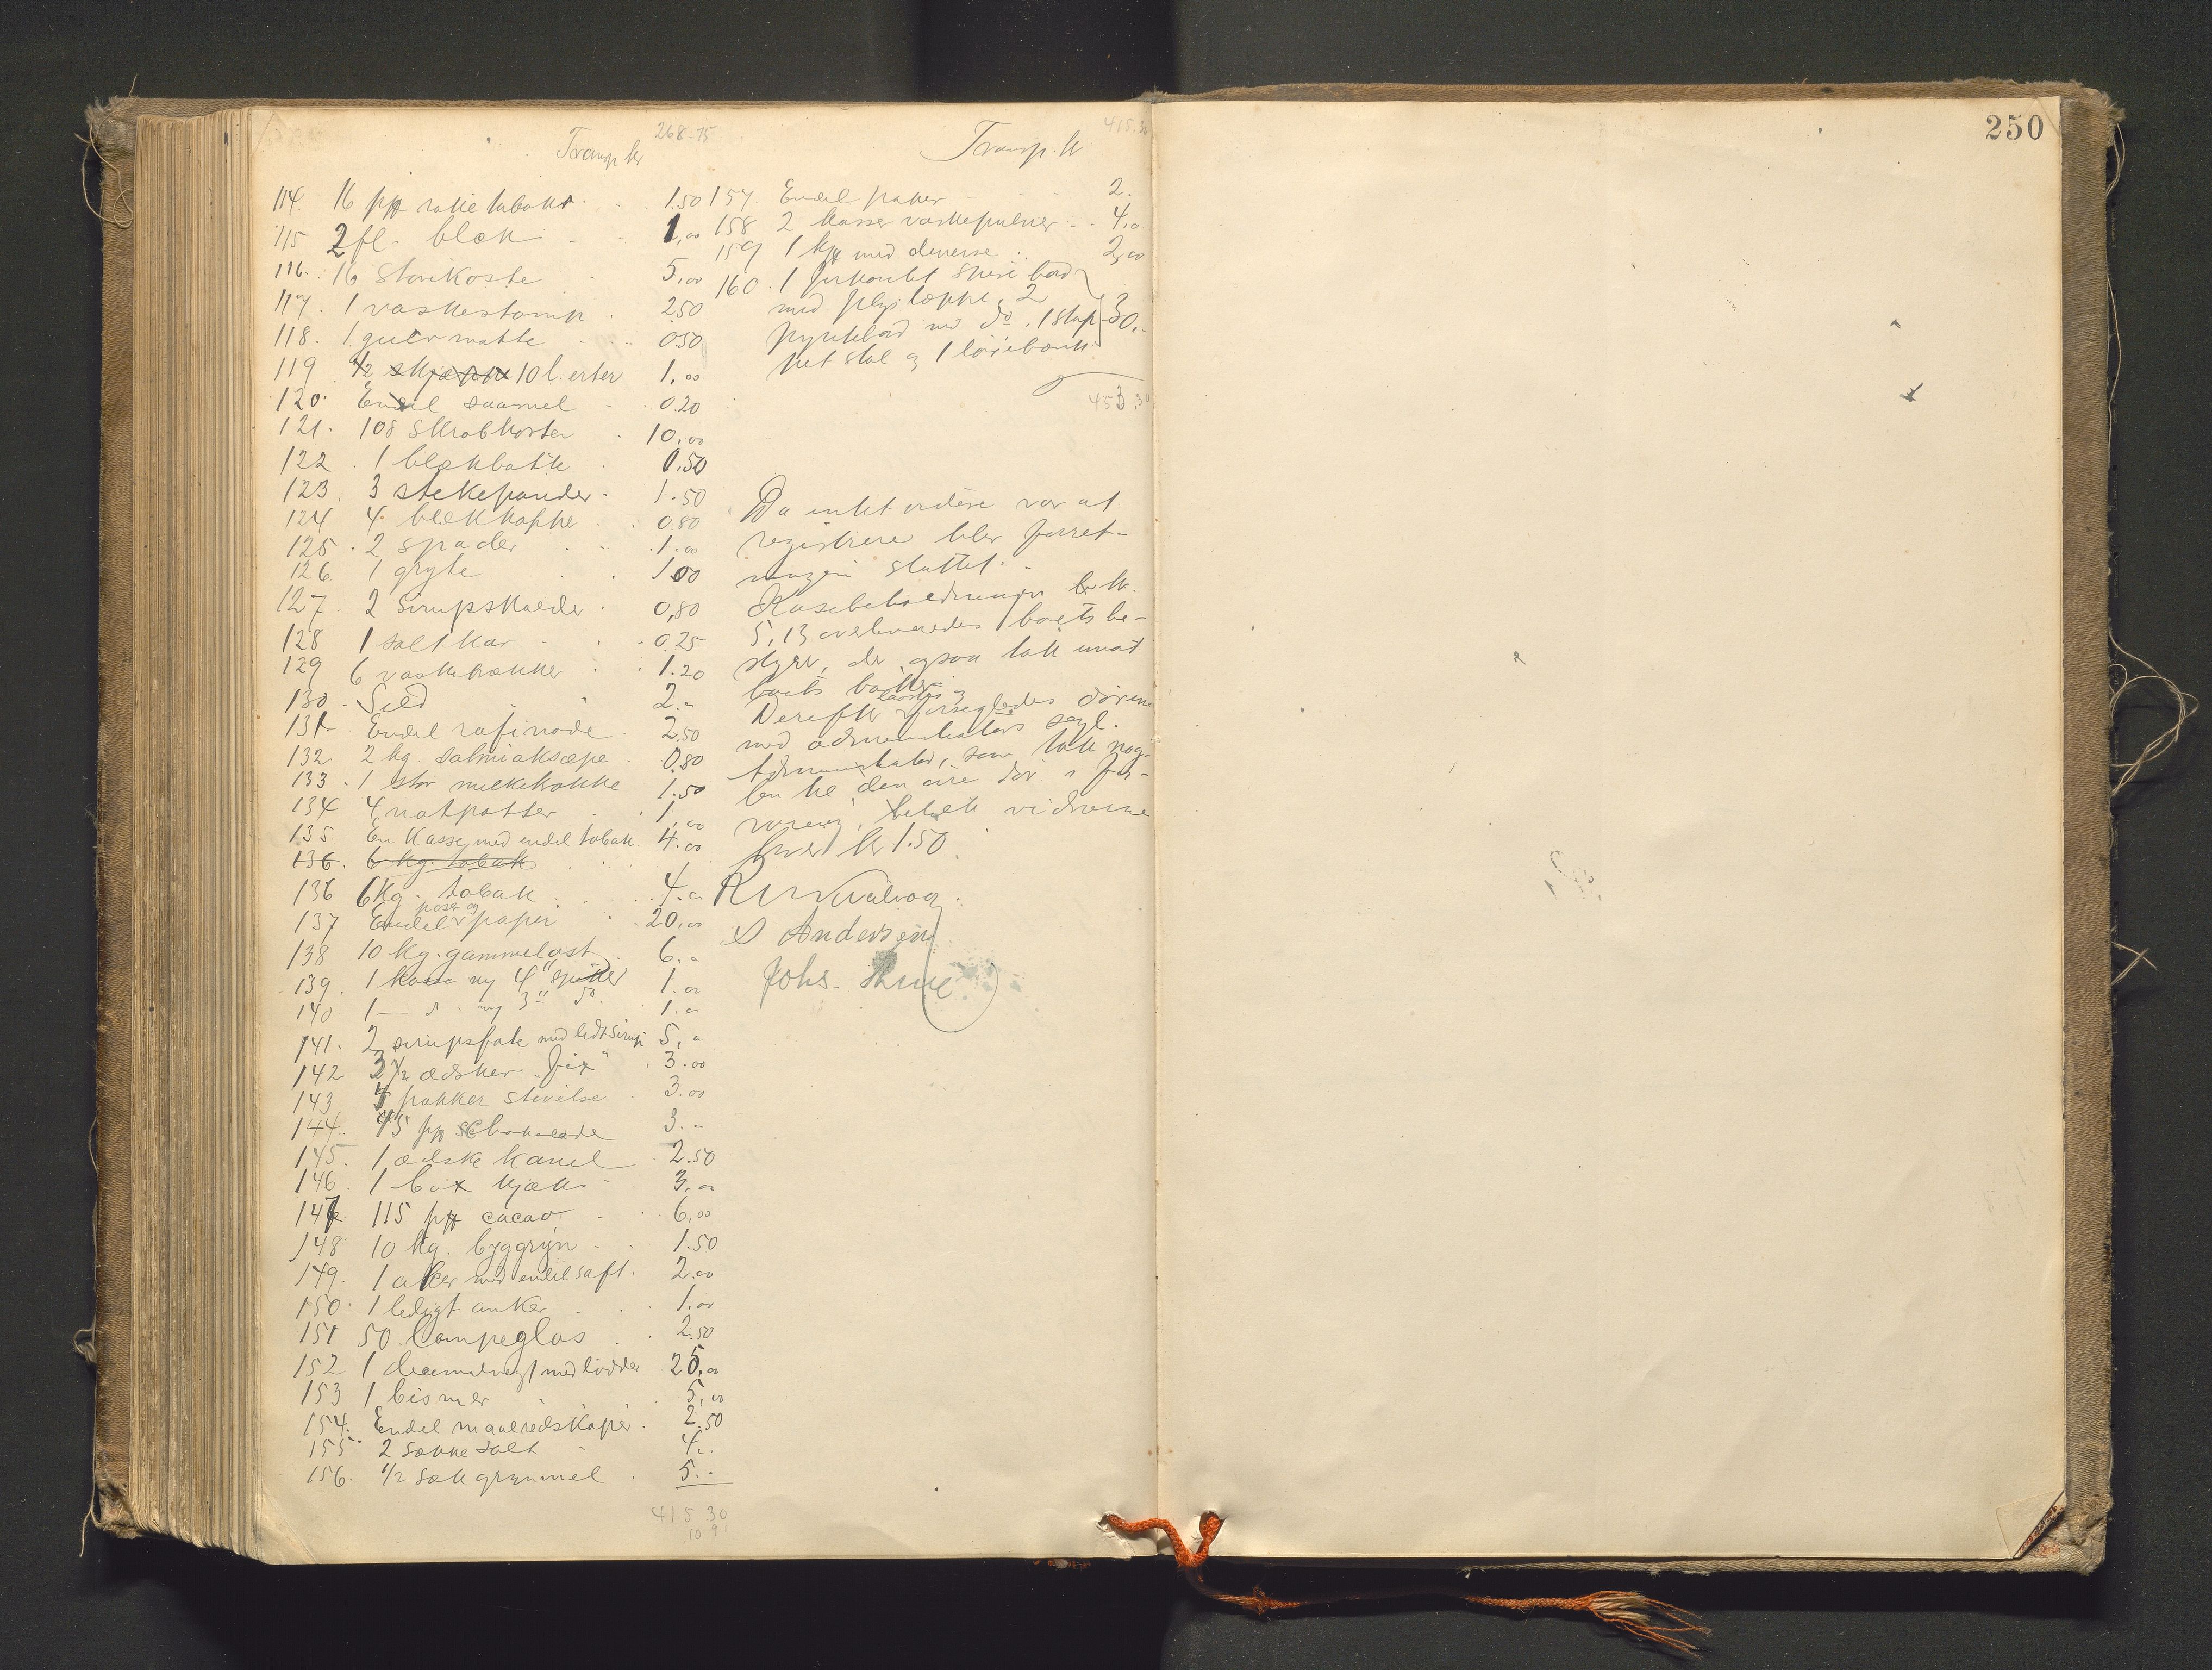 268.75
Transp. kr
114. 16 pk røketobak 1.50
115 2 fl. blæk 1,00
116. 16 stovekoste 5,00
117. 1 vaskestamp 2.50
118. 1 gulvmatte 0.50
119 1/2 skjæppe 10 l. erter 1,00
120. Endel saamel 0.20
121. 108 skrobkoster 10,00
122. 1 blækbøtte 0.50
123. 3 stekepander 1.50
124 4 blekkopper 0.80
125. 2 spader 1.00
126 1 gryte 1.00
127. 2 sirupskander 0,80
128 1 saltkar 0.25
129 6 vaskekrakker 1.20
130. Sild 2.-
131. Endel rafinade 2,50
132 2 kg salmiaksæpe 0.80
133. 1 stor melkekrukke 1.50
134 4 natpotter 1,00
135. En kasse med endel tobak. 4.00
136. 6 kg. tobak
136 6 kg. tobak 4.-
137 Endel poser og papir 20,00
138 10 kg. gammelost 6.-
139. 1 kasse ny 4" spiker 1.00
140 1 — d. ny 3" do 1.-
141. 2 sirupsfate med lidt sirup 5,-
142 3 1/2 ædsker "fix" 3.00
143 4 pakker stivelse 3.00
144. 45 pk schokolade 3.-
145. 1 ædske kanel 2.50
146. 1 box kjæks 3,00
147. 115 pk cacao 6,00
148 10 kg. byggryn 1.50
149. 1 anker med endel saft. 2.00
150. 1 ledigt anker 1.00
151 50 lampeglas 2.50
152 1 decimalvegt med lodder 25,00
153 1 bismer 5,00
154. Endel maaleredskaper 2.50
155 2 sække salt 4..
156. 1/2 sæk grynmel 5..
415 30
10 91
415.30
Transp. kr
157. Endel poker 2.
158 2 kasser vaskepulver 4,0
159 1 kpt med diverse 2,00
160. 1 firkantet spisebord
med plystæppe, 2
pyntebord med do. 1 stop- 30,-
pet stol og 1 løiebænk
453.30
Da intet videre var at
registrere blev forret-
ningen sluttet.
Kassebeholdningen kr.
5,13 overleveredes boets be-
styrer, der ogsaa tok imot
boets bøker.
Derefter laastes og forsegledes dørene
med administrators segl.
Administrator, som tok nøg-
len til den ene dør i for-
varing, betalte vidnerne
hver kr 1.50
Andersen
Johs.
250